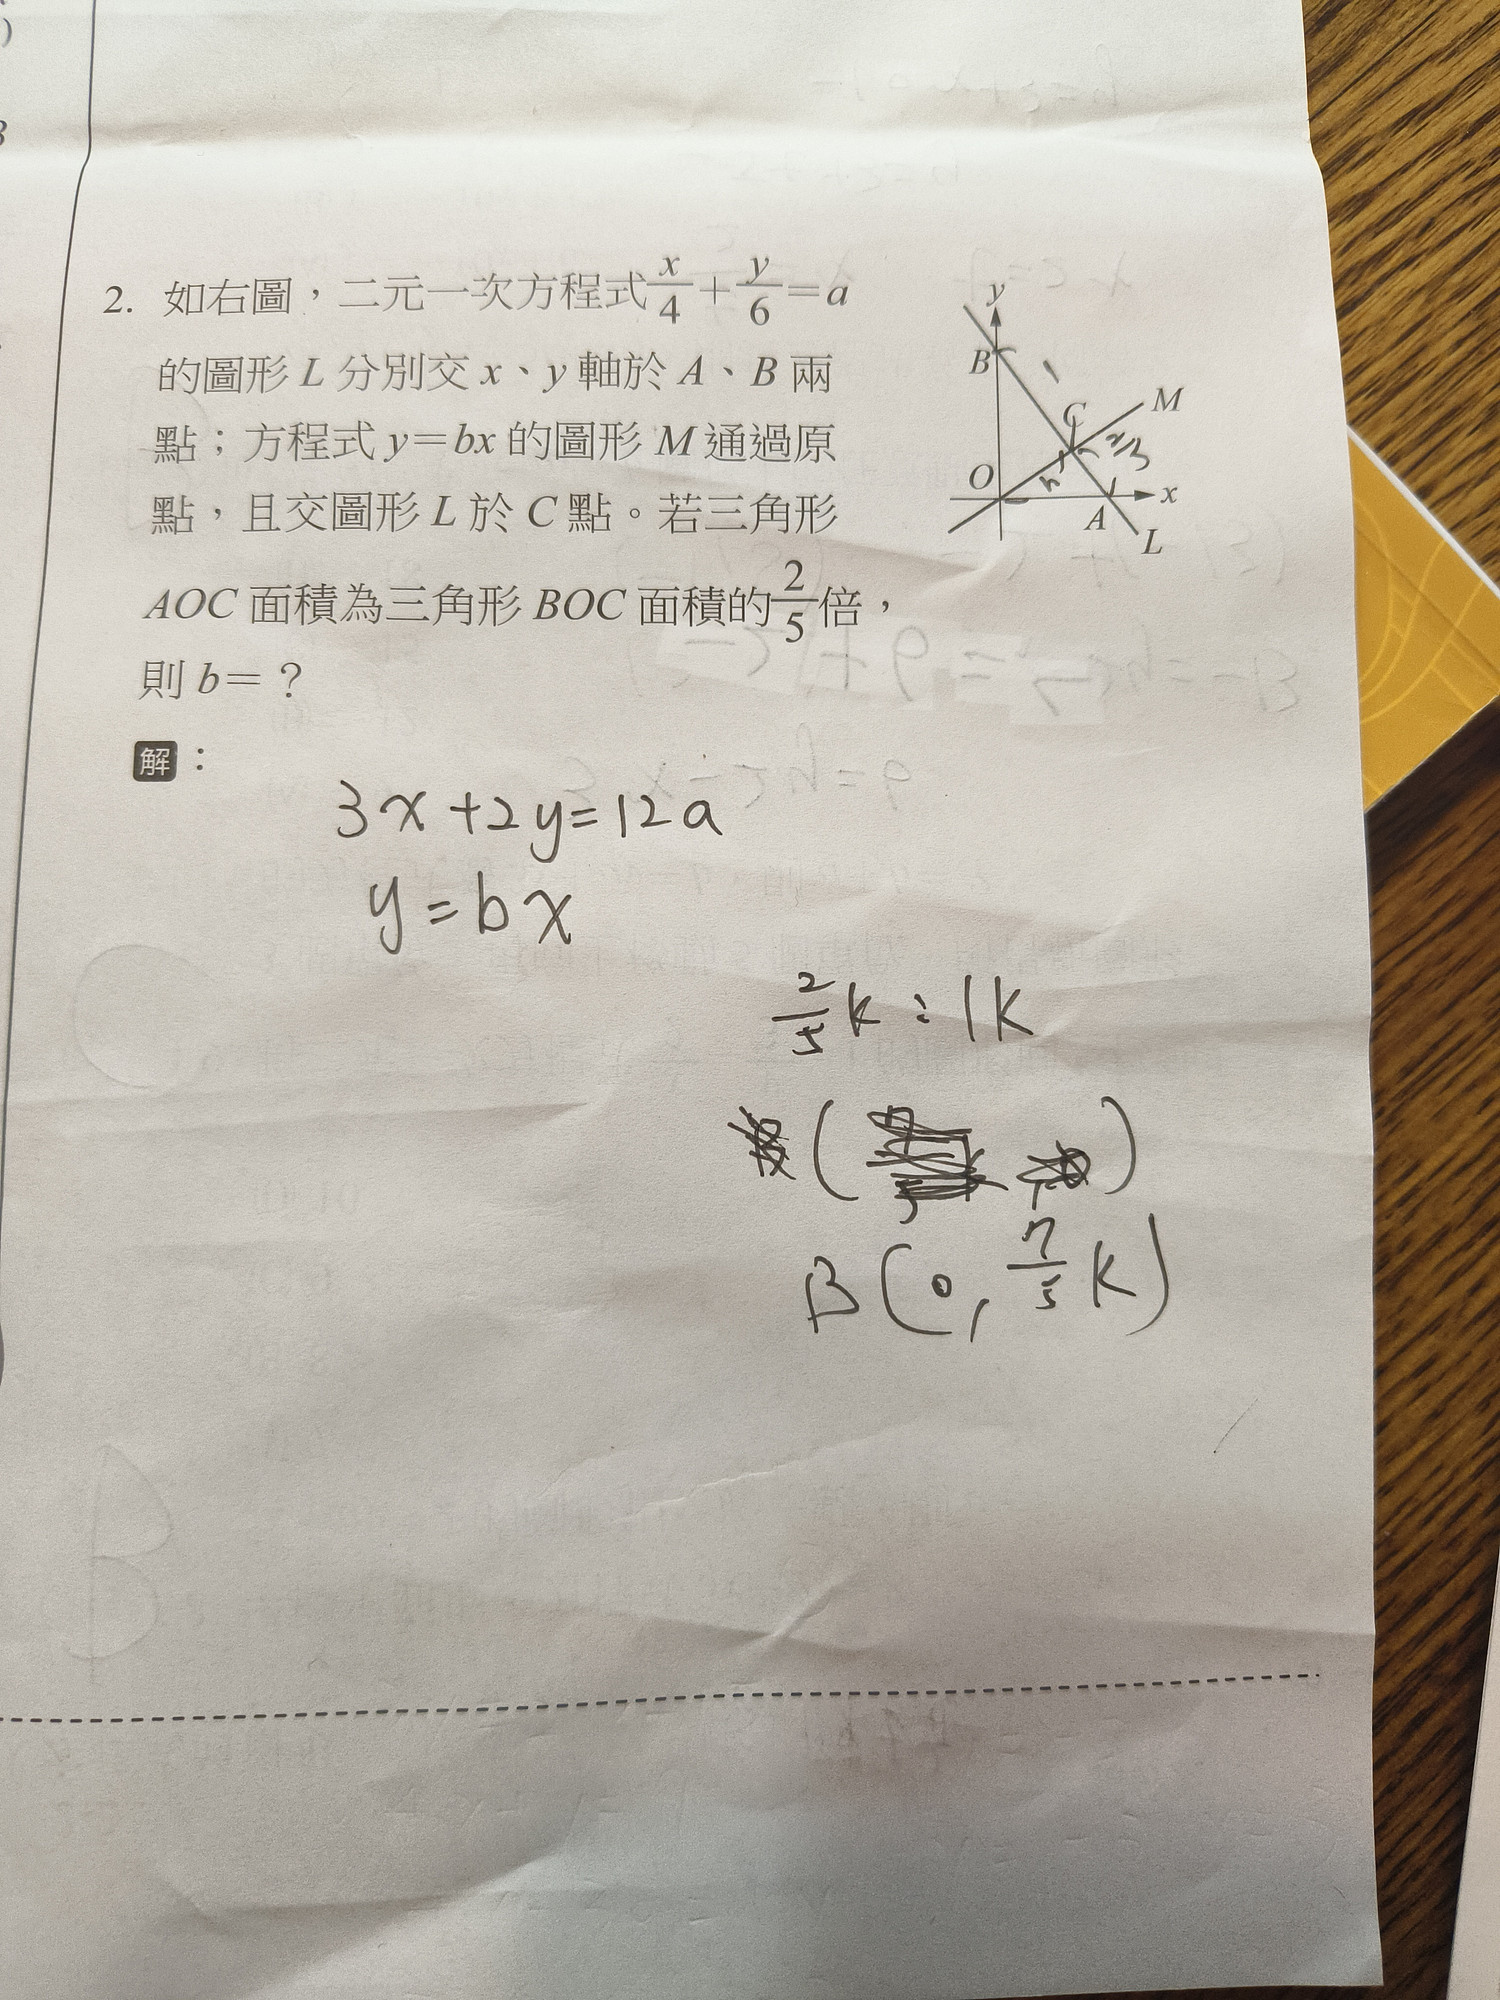 2. 如右圖，二元一次方程式x/4+y/6=a
的圖形 L 分別交 x、y 軸於 A、B 兩
點；方程式 y=bx 的圖形 M 通過原
點，且交圖形 L 於 C 點。若三角形
AOC 面積為三角形 BOC 面積的2/5倍，
則 b=？
y
B
C
M
O
x
A
L
解：
3x+2y=12a
y=bx
2/5k:1k
B(0,7/5k)